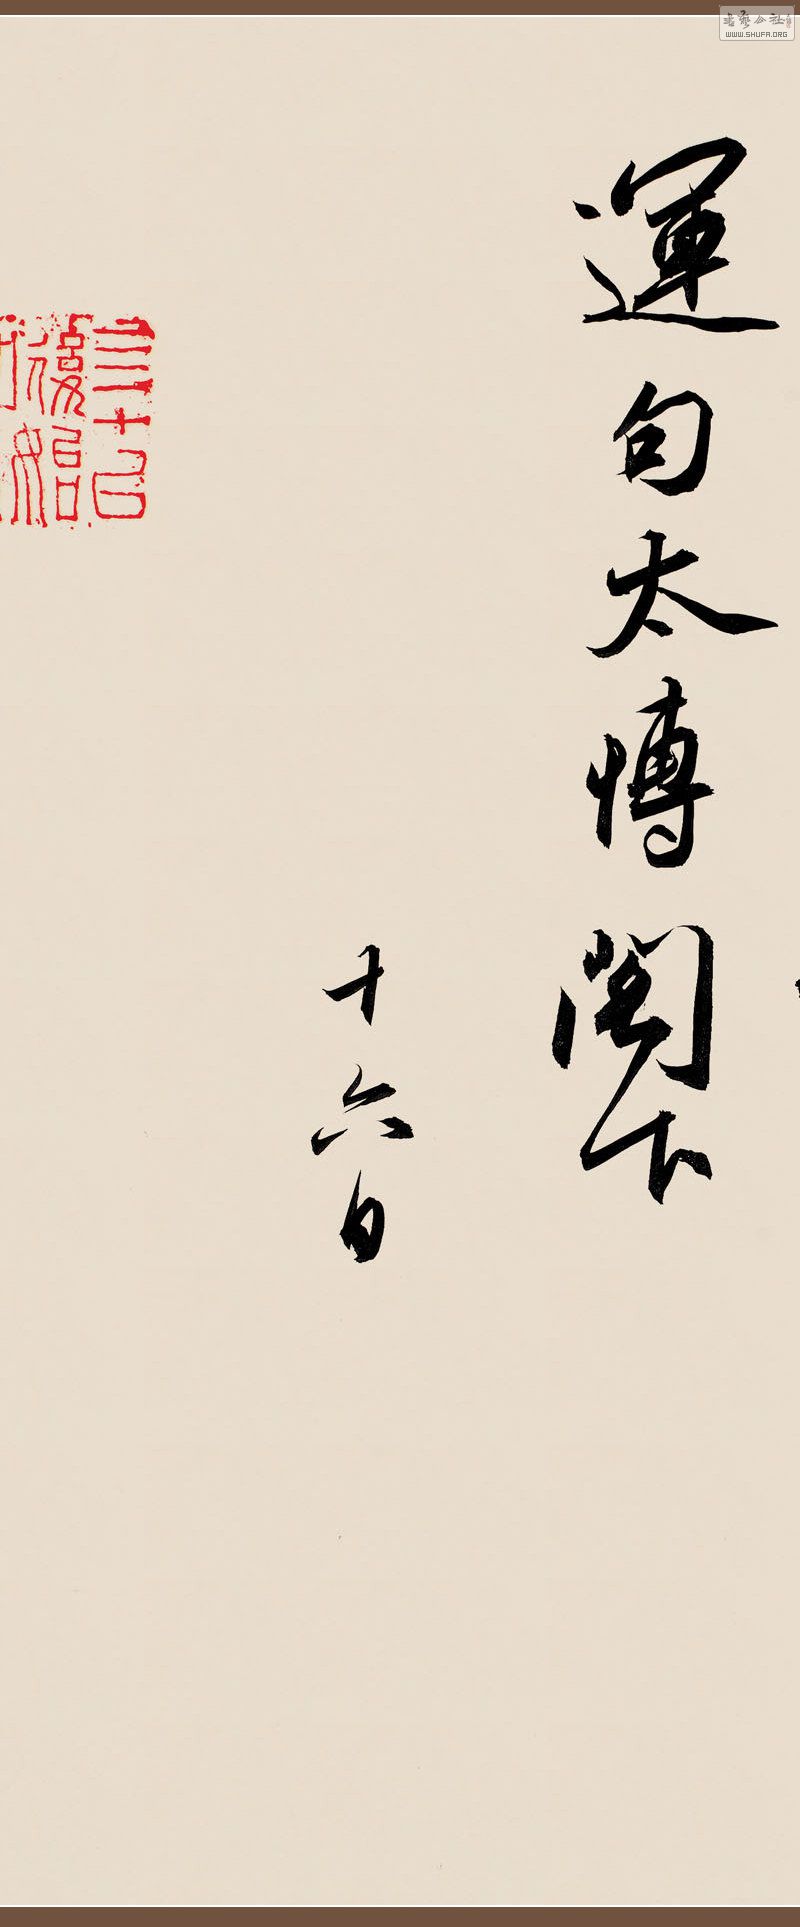 運句太傅閣下
十六日
三十己
復始
書藝公社
WWW.SHUFA.ORG